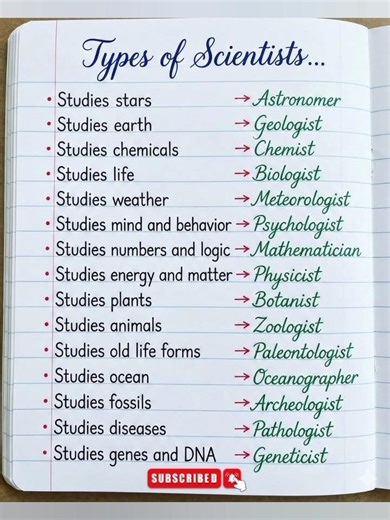 Types of Scientists...
• Studies stars → Astronomer
• Studies earth → Geologist
• Studies chemicals → Chemist
• Studies life → Biologist
• Studies weather → Meteorologist
• Studies mind and behavior → Psychologist
• Studies numbers and logic → Mathematician
• Studies energy and matter → Physicist
• Studies plants → Botanist
• Studies animals → Zoologist
• Studies old life forms → Paleontologist
• Studies ocean → Oceanographer
• Studies fossils → Archeologist
• Studies diseases → Pathologist
• Studies genes and DNA → Geneticist
SUBSCRIBED